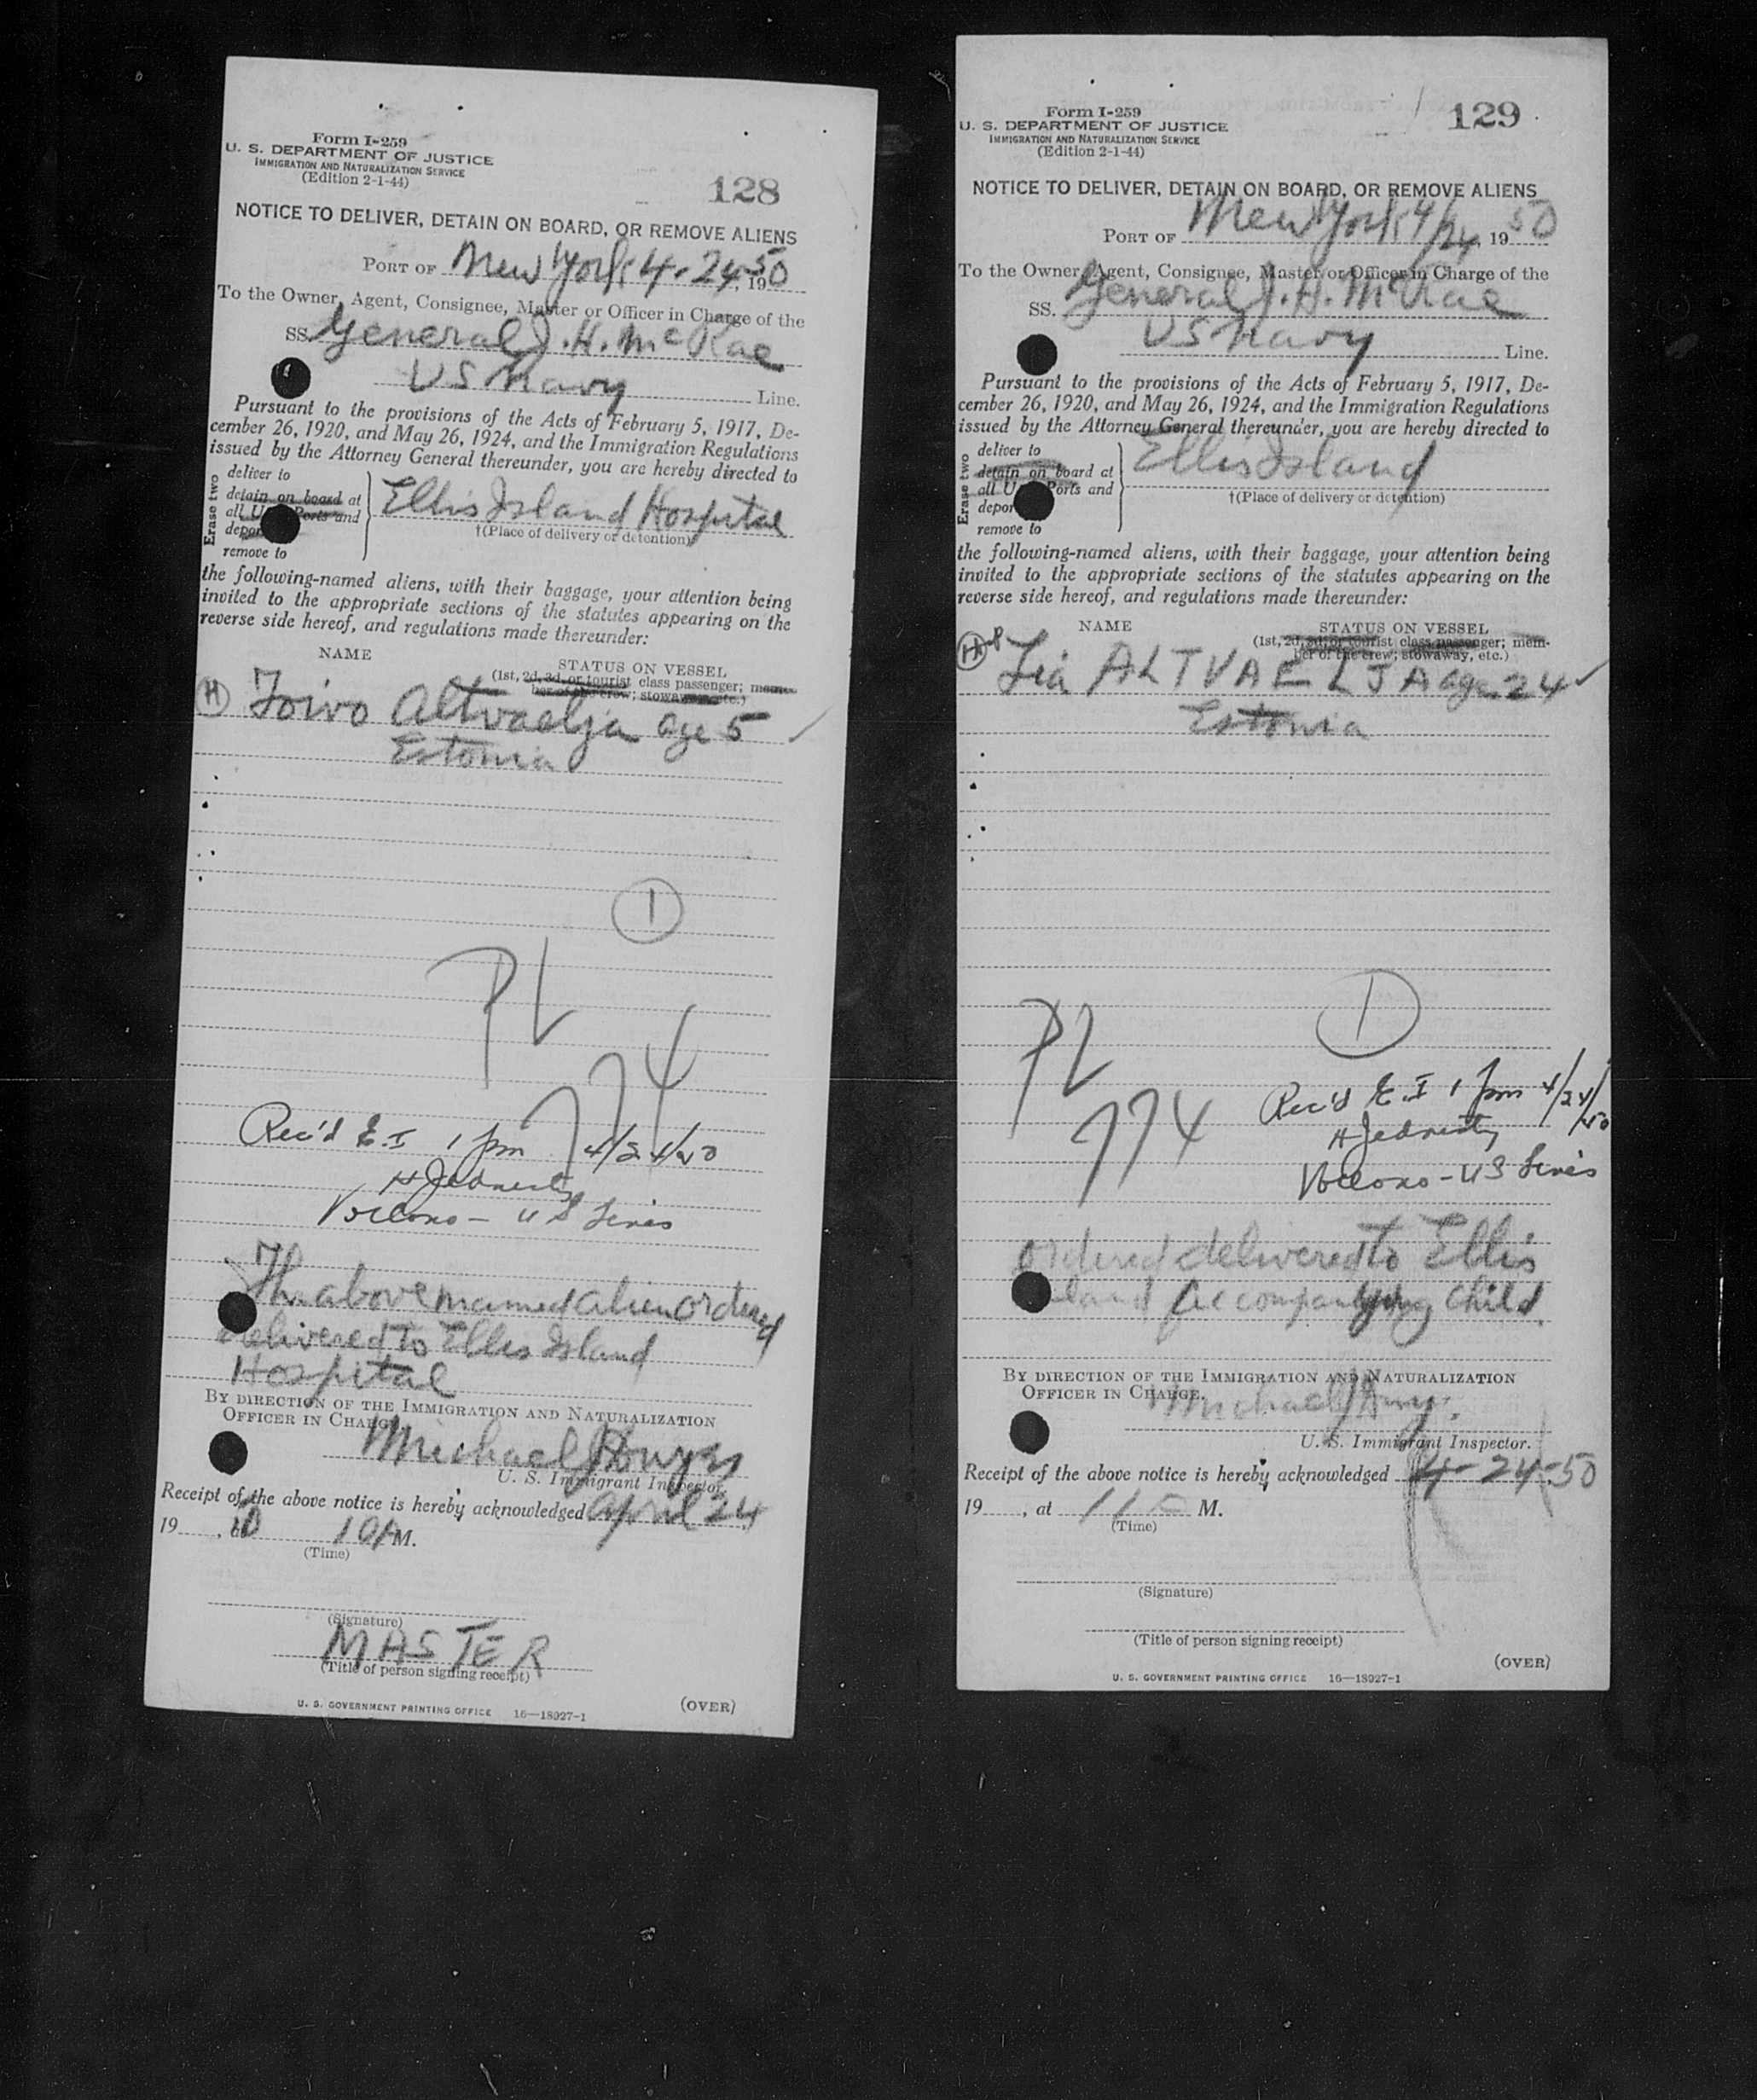 Form I-259
U. S. DEPARTMENT OF JUSTICE
IMMIGRATION AND NATURALIZATION SERVICE
(Edition 2-1-44)
128
NOTICE TO DELIVER, DETAIN ON BOARD, OR REMOVE ALIENS
PORT OF New York 4-24, 1950
To the Owner, Agent, Consignee, Master or Officer in Charge of the
SS. General J. H. McRae
US Navy Line.
Pursuant to the provisions of the Acts of February 5, 1917, De-
cember 26, 1920, and May 26, 1924, and the Immigration Regulations
issued by the Attorney General thereunder, you are hereby directed to
Erase two
deliver to
detain on board at
all U. Ports and
depor
remove to
Ellis Island Hospital
†(Place of delivery or detention)
the following-named aliens, with their baggage, your attention being
invited to the appropriate sections of the statutes appearing on the
reverse side hereof, and regulations made thereunder:
NAME
STATUS ON VESSEL
(1st, 2d, 3d, or tourist class passenger; mem-
ber of the crew; stowaway, etc.)
(H) Toivo Altvaelja age 5
Estonia
1
PL
774
Rec'd E.I 1 pm 4/24/50
US Lines
The above named alien ordered
delivered to Ellis Island
Hospital
BY DIRECTION OF THE IMMIGRATION AND NATURALIZATION
OFFICER IN CHARGE.
Michael
U. S. Immigrant Inspector.
Receipt of the above notice is hereby acknowledged April 24
19 50, at 10 A M.
(Time)
(Signature)
MASTER
(Title of person signing receipt)
U. S. GOVERNMENT PRINTING OFFICE 16—18927-1
(OVER)
Form I-259
U. S. DEPARTMENT OF JUSTICE
IMMIGRATION AND NATURALIZATION SERVICE
(Edition 2-1-44)
129
NOTICE TO DELIVER, DETAIN ON BOARD, OR REMOVE ALIENS
PORT OF New York 4/24, 1950
To the Owner, Agent, Consignee, Master or Officer in Charge of the
SS. General J. H. McRae
US Navy Line.
Pursuant to the provisions of the Acts of February 5, 1917, De-
cember 26, 1920, and May 26, 1924, and the Immigration Regulations
issued by the Attorney General thereunder, you are hereby directed to
Erase two
deliver to
detain on board at
all U. Ports and
depor
remove to
Ellis Island
†(Place of delivery or detention)
the following-named aliens, with their baggage, your attention being
invited to the appropriate sections of the statutes appearing on the
reverse side hereof, and regulations made thereunder:
NAME
STATUS ON VESSEL
(1st, 2d, 3d, or tourist class passenger; mem-
ber of the crew; stowaway, etc.)
Lia ALTVAELJA age 24
Estonia
1
PL
774
Rec'd E.I 1 pm 4/24/50
US Lines
Ordered delivered to Ellis
land Accompanying child.
BY DIRECTION OF THE IMMIGRATION AND NATURALIZATION
OFFICER IN CHARGE.
Michael
U. S. Immigrant Inspector.
Receipt of the above notice is hereby acknowledged 4-24-50
19 , at 11 M.
(Time)
(Signature)
(Title of person signing receipt)
(OVER)
U. S. GOVERNMENT PRINTING OFFICE 16—18927-1